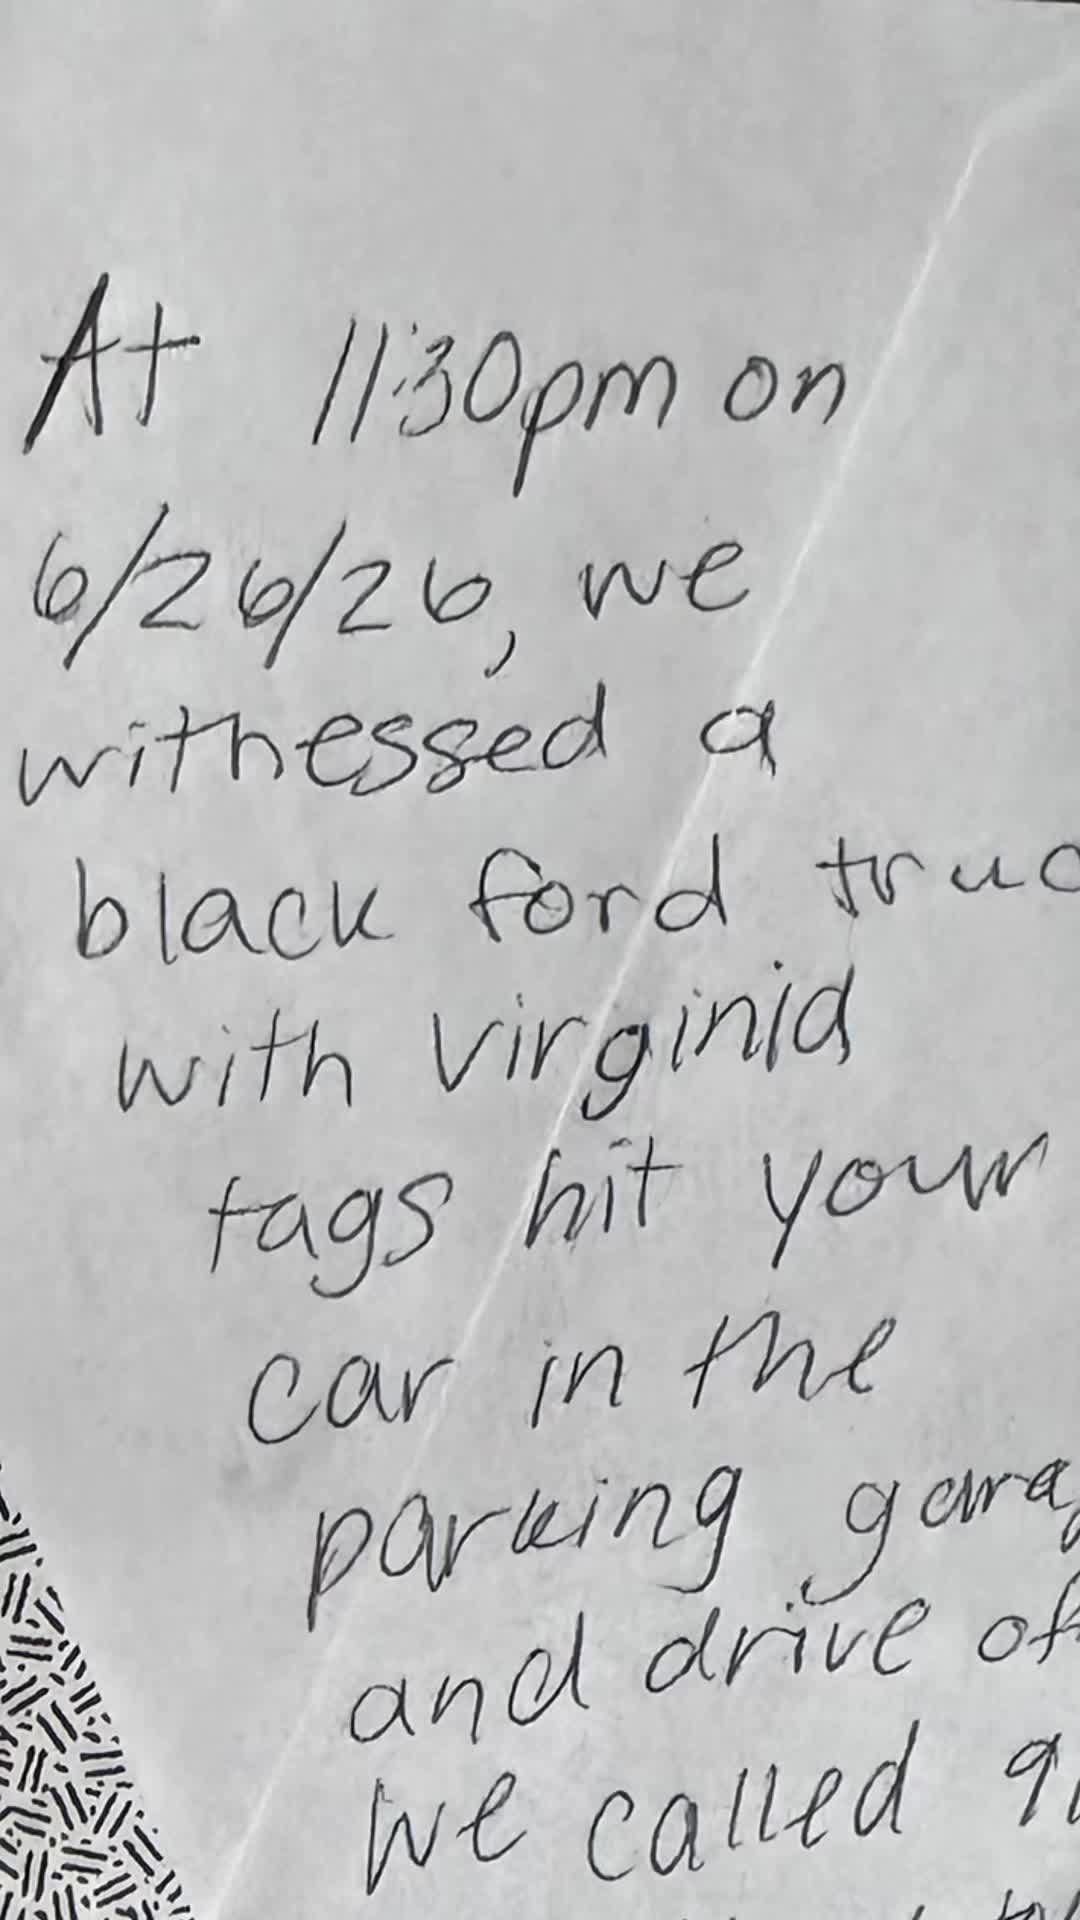 At 11:30pm on
6/26/26, we
witnessed a
black ford truc
with virginia
tags hit your
car in the
parking garag
and drive of
we called 91